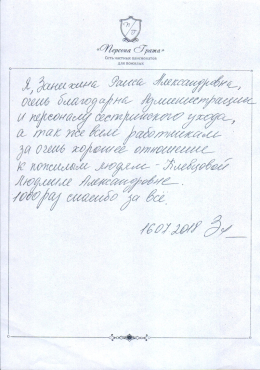 «Первая Грета»
Сеть частных пансионатов
для пожилых
Я, Заняхина Раиса Александровна,
очень благодарна Администрации
и персоналу сестринского ухода,
а так же всем работникам
за очень хорошее отношение
к пожилым людям - Клевцовой
Людмиле Александровне.
100 раз спасибо за всё.
16.07.2018